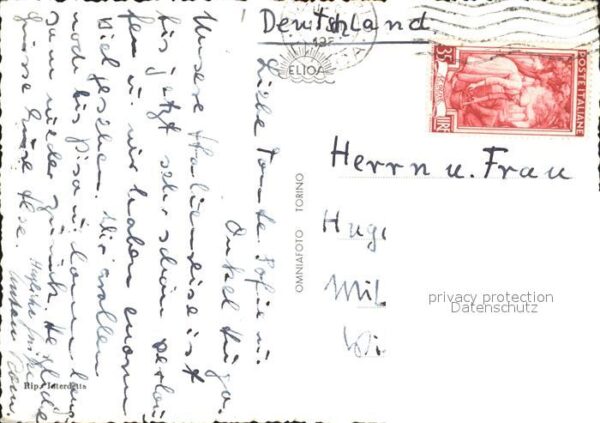 Deutschland
ELIOA
35
LIRE
POSTE ITALIANE
Liebe Tante Sofie u.
Onkel Hugo.
Unsere Italienreise ist
bis jetzt sehr schön verlau
fen u. wir haben enorm
viel gesehen. Wir wollen
noch bis Pisa u. dann lang
sam wieder zurück. Herzliche
Grüsse Eure
Herrn u. Frau
Hug
Mil
Wi
OMNIAFOTO TORINO
privacy protection
Datenschutz
Rip. Interdetta